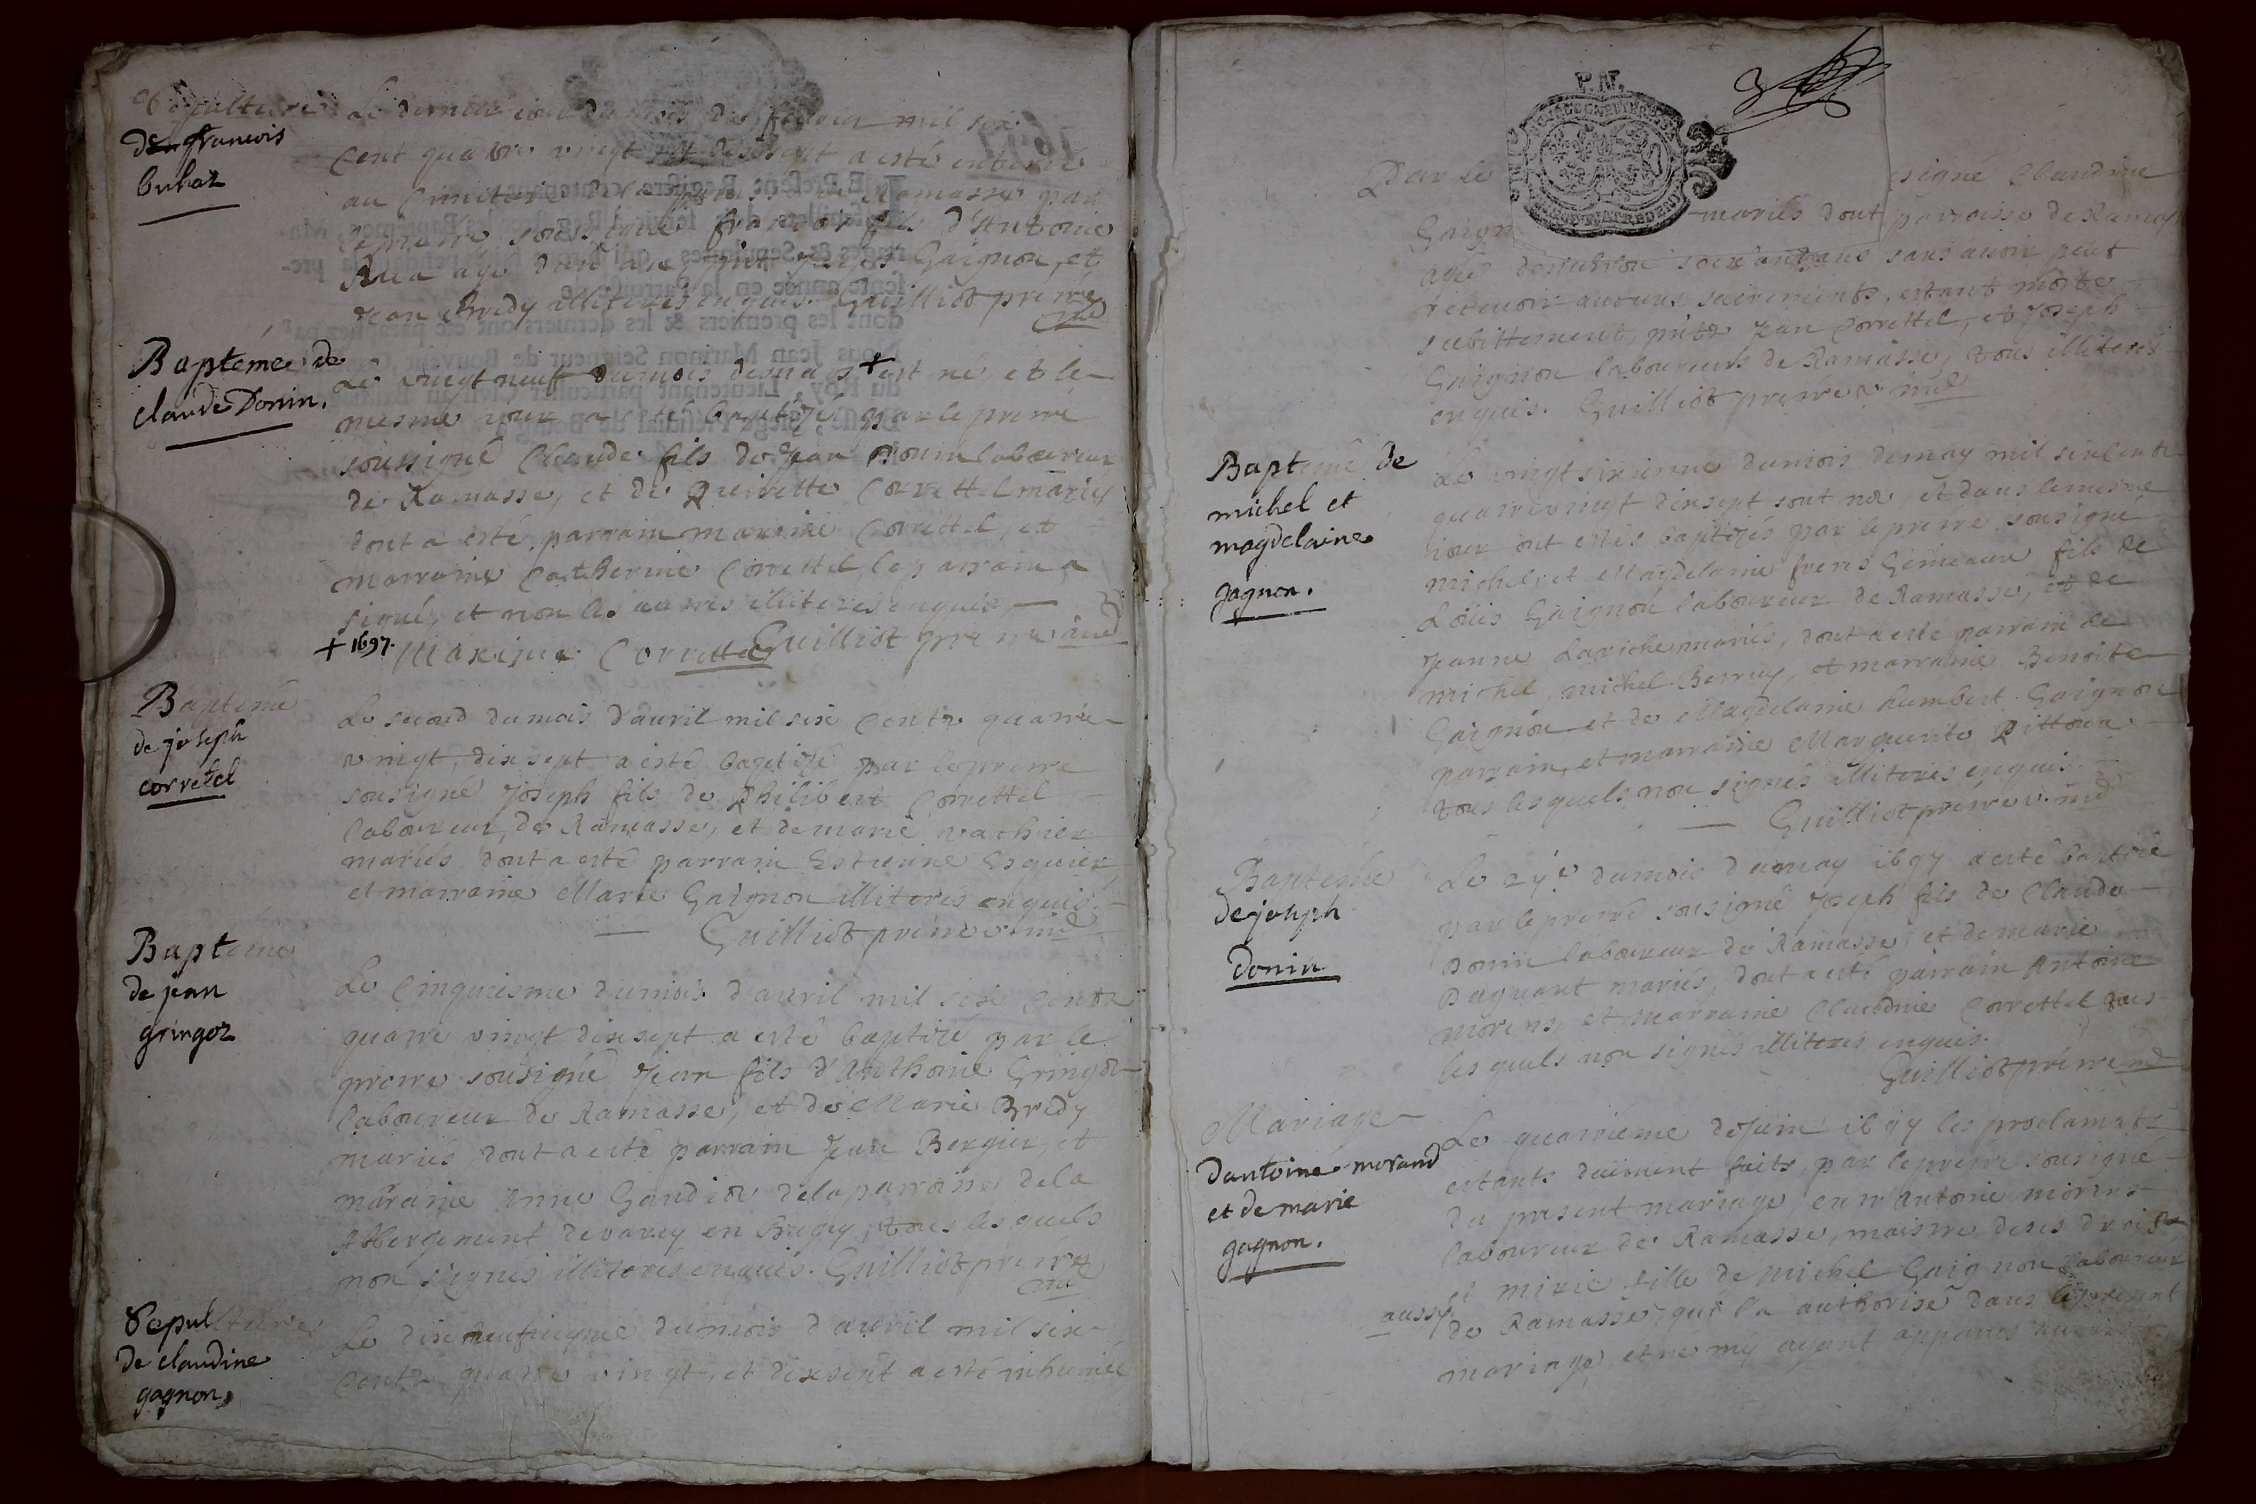 Sepulture
de francois
buhaz
Le dernier iour du mois de feburier mil six
cent quatre vingt et dixsept a esté enterré
au Cimitiere de la parroisse de Ramasse par
le prettre soussigné francois fils d'Antoine
agé d'un an, pnts Joseph Gaignon, et
Jean Bredy illiterés enquis. Guilliot prettre
Baptéme de
claude Donin.
Le vingt neuf du mois de mars + est né, et le
mesme iour a esté baptizé par le prettre
soussigné Claude fils de Jean Donin laboureur
de Ramasse, et de Pierrette Correttel mariés
dont a esté parrain maxime Correttel, et
marraine Catherine Correttel, le parrain a
signé, et non les autres illiterés enquis
+ 1697. Maxime Correttel Guilliot prettre
Baptemé
de joseph
corretel
Le second du mois d'auril mil six Cents quatre
vingt, dixsept a esté baptizé par le prettre
sousigné Joseph fils de Philibert Correttel
laboureur de Ramasse, et de marie vachier
mariés dont a esté parrain Estienne Esguier
et marraine Marie Gaignon illiterés enquis.
Guilliot prettre
Baptemé
de jean
gringoz
Le Cinquiesme du mois d'auril mil six Cents
quatre vingt dixsept a esté baptizé par le
prettre sousigné Jean fils d'Anthoine Gringoz
laboureur de Ramasse, et de Marie Bredy
mariés dont a esté parrain Jean Bergier, et
maraine Anne Gaudion de la parroisse de la
Abbergement de varey en Bugey, tous lesquels
non signés illiterés enquis. Guilliot prettre
Sepulture
de claudine
gagnon
Le dixneufuieme du mois d'auril mil six
Cents quatre vingt, et dixsept a esté inhumée
P.N.
Par le signé Claudine
Gaign mariés dont parroisse de Ramasse
agée d'enuiron soixante ans sans auoir peut
receuoir aucuns sacrements, estant morte
subittement, pnts Jean Correttel, et Joseph
Gaignon laboureurs de Ramasse, tous illiterés
enquis. Guilliot prettre
Baptemé de
michel et
magdelaine
gagnon.
Le vingt sixieme du mois de may mil six cents
quatre vingt dixsept sont né, et dans le mesme
iour ont estés baptizés par le prettre sousigné
michel, et Magdelaine freres Gemeaux fils de
Loüis Gaignon laboureur de Ramasse, et de
Jeanne Lariche mariés, dont a esté parrain de
michel, michel Berruy, et marraine Benoite
Gaignon et de Magdelaine humbert Gaignon
parrain, et marraine Marguerite Pittion
tous lesquels non signés illiterés enquis.
Guilliot prettre
Baptemé
de joseph
Donin
Le 27e du mois de may 1697 a esté baptizé
par le prettre sousigné Joseph fils de Claude
Donin laboureur de Ramasse, et de marie
Paguant mariés, dont a esté parrain Antoine
morens, et marraine Claudine Correttel tous
lesquels non signés illiterés enquis.
Guilliot prettre
Mariage
d'antoine morand
et de marie
gagnon.
Le quatrieme de Juin 1697 les proclamats
estants duëment faits, par le prettre sousigné
du present mariage, entr' Antoine morens
laboureur de Ramasse, maistre de ses droits
et marie fille de michel Gaignon laboureur
aussy de Ramasse, qui l'a authorisé dans le present
mariage, et ne m'y ayant apparus